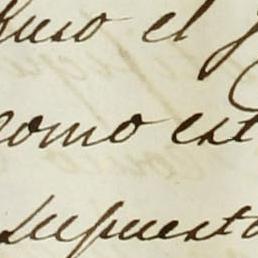 puso el
como est
supuesto